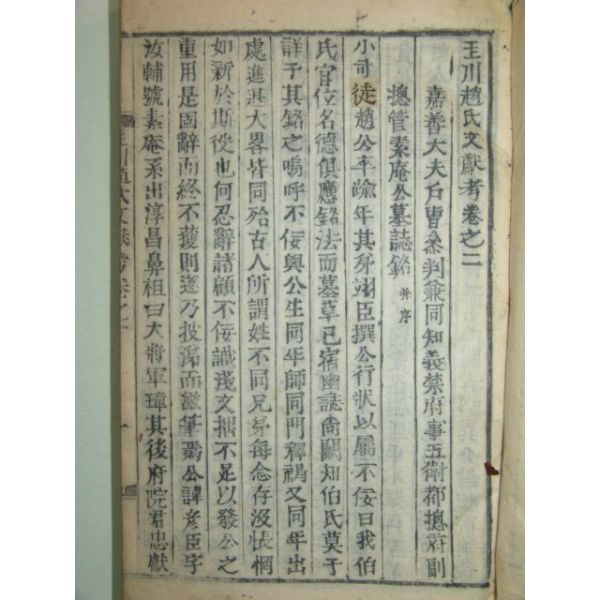 玉川趙氏文獻考卷之二
嘉善大夫戶曹叅判兼同知義禁府事五衛都摠府副
摠管素庵公墓誌銘 并序
小司徒趙公卒踰年其身翊臣撰公行狀以屬不佞曰我伯
氏官位名德俱應銘法而墓草已宿幽誌尙闕知伯氏莫子
詳子其銘之嗚呼不佞與公生同年師同門釋褐又同年出
處進退大畧皆同殆古人所謂姓不同兄弟每念存沒悵惘
如新於斯役也何忍辭諸顧不佞識淺文拙不足以發公之
重用是固辭而終不獲則遂乃投淚而滋筆焉公諱彥臣字
汝輔號素庵系出淳昌鼻祖曰大將軍璋其後府院君忠獻